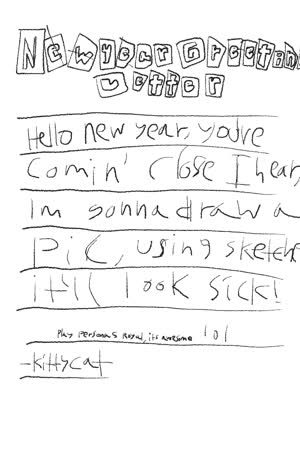 New year Greeting
Letter
Hello new year, you're
Comin' close I hear,
Im gonna draw a
pic, using sketch
it'll look sick!
Play persona 5 royal, its awesome lol
-kittycat